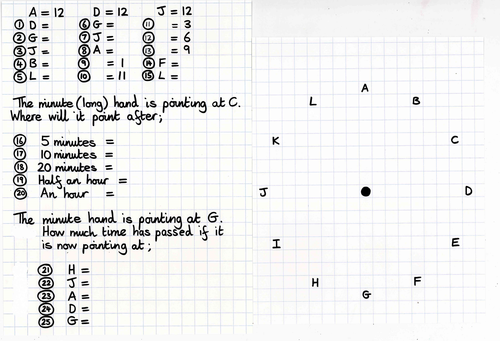 A = 12 D = 12 J = 12
① D = ⑥ G = ⑪ = 3
② G = ⑦ J = ⑫ = 6
③ J = ⑧ A = ⑬ = 9
④ B = ⑨ = 1 ⑭ F =
⑤ L = ⑩ = 11 ⑮ L =
The minute (long) hand is pointing at C.
Where will it point after;
⑯ 5 minutes =
⑰ 10 minutes =
⑱ 20 minutes =
⑲ Half an hour =
⑳ An hour =
The minute hand is pointing at G.
How much time has passed if it
is now pointing at;
㉑ H =
㉒ J =
㉓ A =
㉔ D =
㉕ G =
A
L B
K C
J D
I E
H F
G